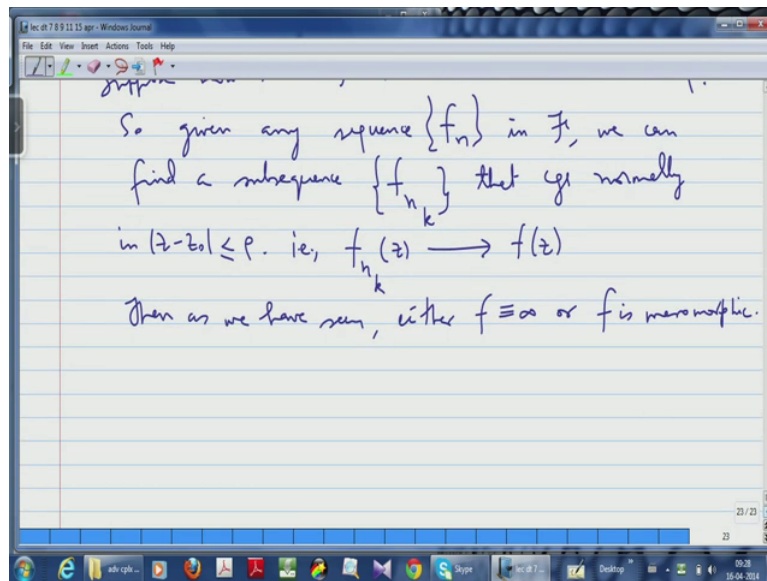 lec dt 7 8 9 11 15 apr - Windows Journal
File Edit View Insert Actions Tools Help
So given any sequence {f_n} in F, we can
find a subsequence {f_{n_k}} that cgs normally
in |z-z_0| ≤ ρ. ie., f_{n_k}(z) ⟶ f(z)
Then as we have seen, either f ≡ ∞ or f is meromorphic.
23 / 23
23
adv cplx ...
Skype
lec dt 7...
Desktop
09:28
16-04-2014